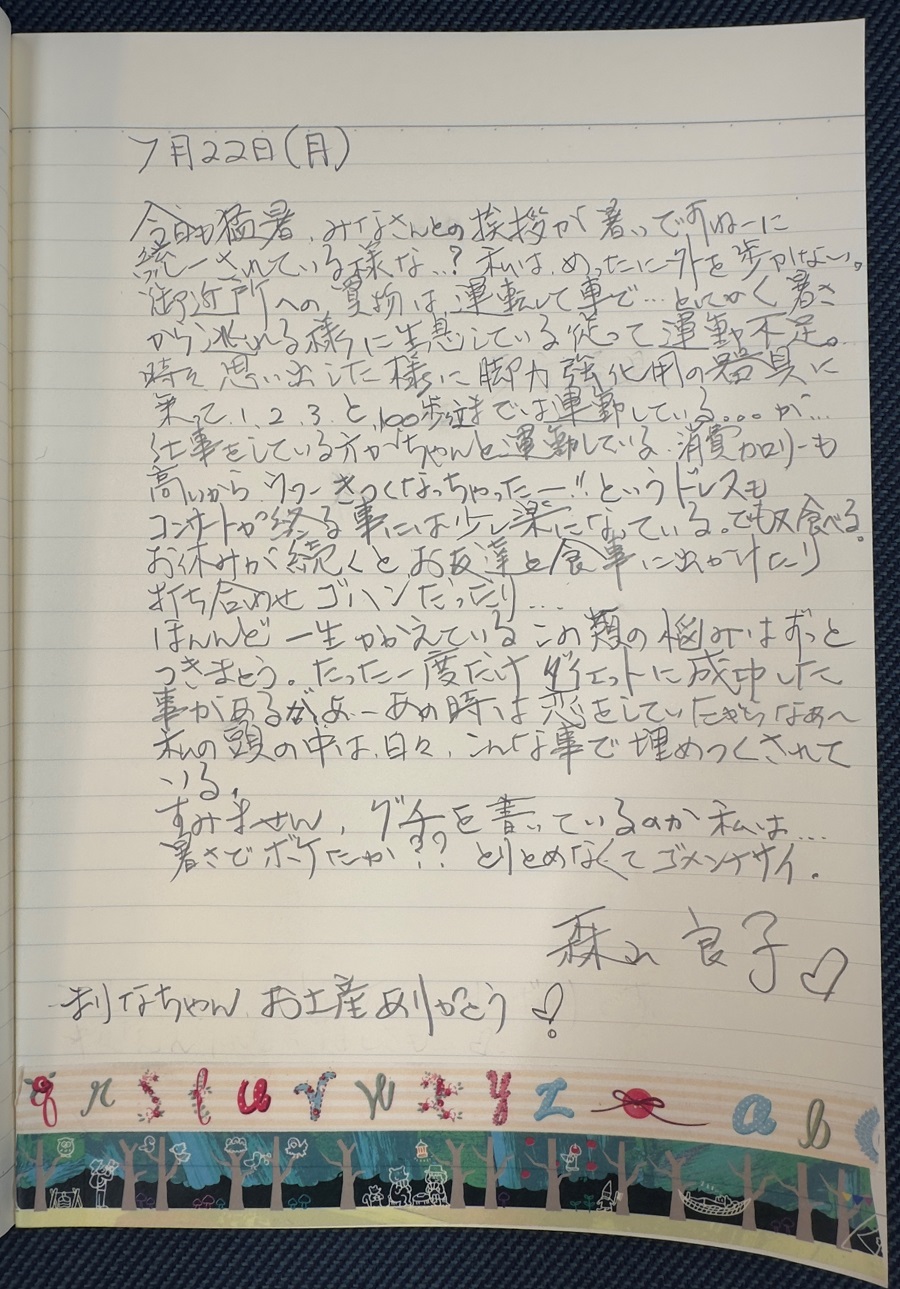 7月22日(月)
今日も猛暑、みなさんとの挨拶が暑いですねーに
統一されている様な..? 私は、めったに外を歩かない。
御近所への買物は、運転して車で…とにかく暑さ
から逃れる様に生息している従って運動不足。
時々思い出した様に脚力強化用の器具に
乗って、1、2、3、と、100歩位までは運動している。。。が…
仕事をしている方がちゃんと運動している、消費カロリーも
高いから、ウワーきつくなっちゃったー!!というドレスも
コンサートが終る事には少し楽になっている。でも又食べる。
お休みが続くとお友達と食事に出かけたり
打ち合わせゴハンだったり…
ほんんど一生かかえているこの類の悩みはずっと
つきまとう。たった一度だけダイエットに成功した
事があるがよーあの時は恋をしていたからなぁ〜
私の頭の中は、日々、こんな事で埋めつくされて
いる。
すみません、グチを書いているのか私は…
暑さでボケたか?? とりとめなくてゴメンナサイ。
森山良子♡
まりなちゃん、お土産ありがとう♡
q r s t u v w x y z a b